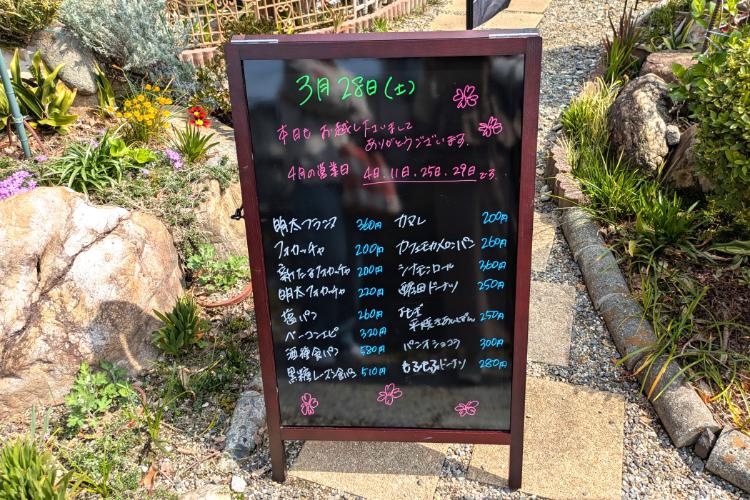 3月28日(土)
本日も お越し下さいまして
ありがとうございます。
4月の営業日 4日、11日、25日、29日です。
明太フランス 360円
フォカッチャ 200円
新たまフォカッチャ 200円
明太フォカッチャ 220円
塩パン 260円
ベーコンエピ 320円
酒種食パン 580円
黒糖レーズン食パン 510円
カヌレ 200円
カフェモカメロンパン 260円
シナモンロール 360円
ドーナツ 250円
よもぎ
平焼きあんぱん 250円
パンオショコラ 300円
もちもちドーナツ 280円